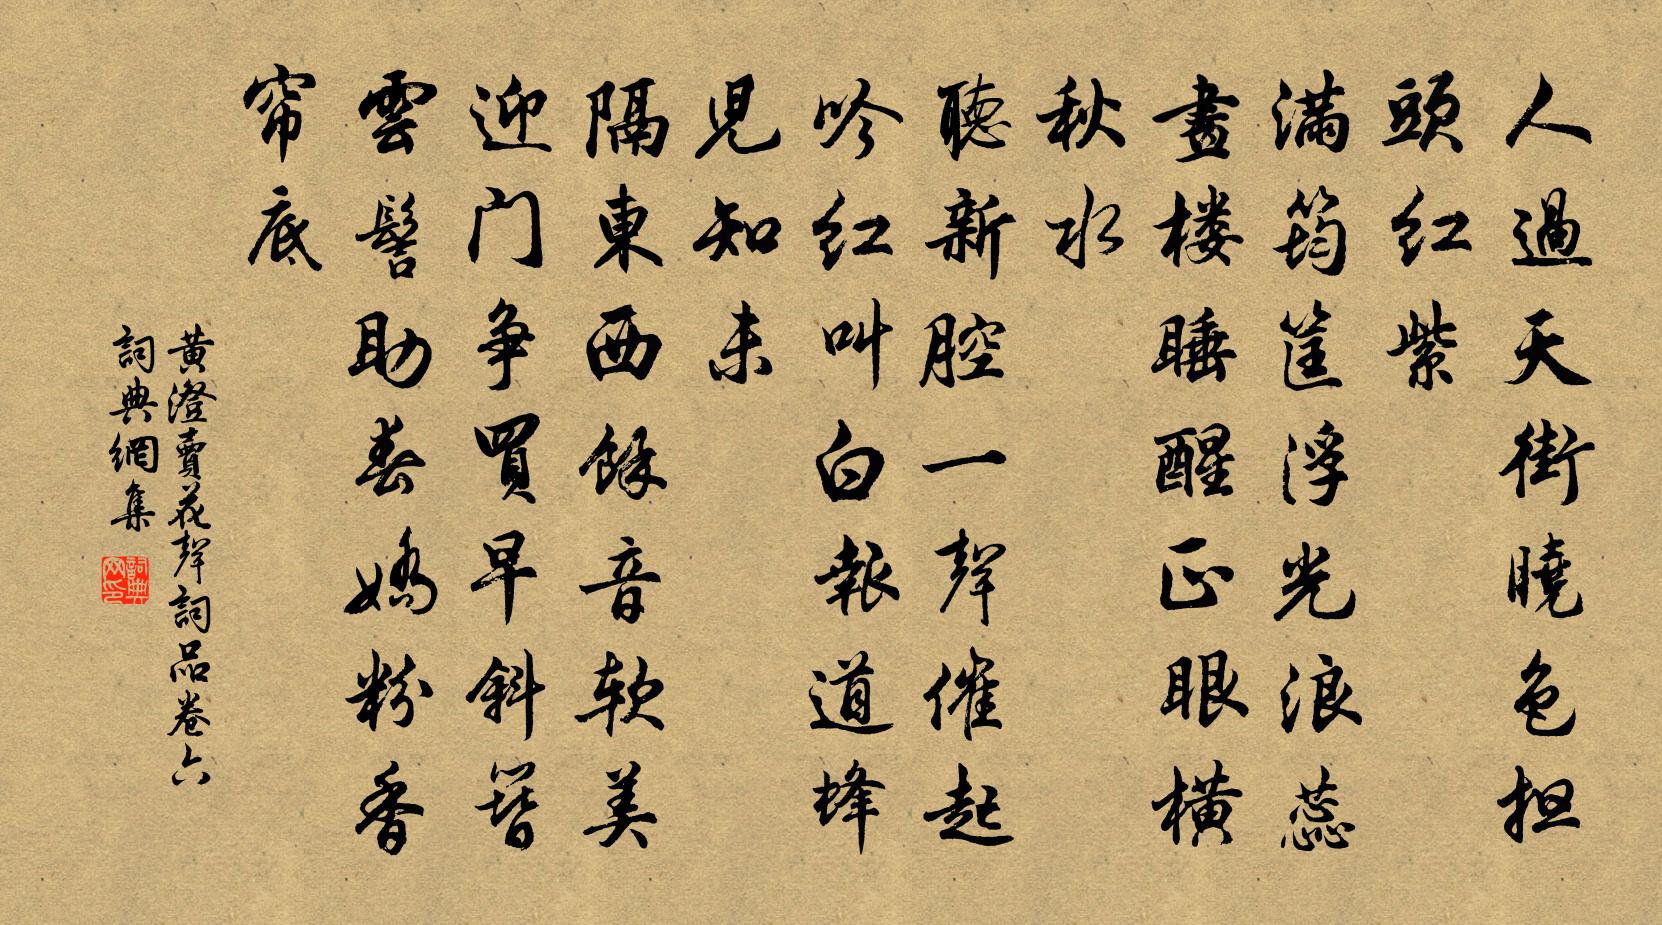 人過天街曉色担
頭红紫
滿筠筐浮光浪蕊
畫楼睡醒正眼橫
秋水
聽新腔一聲催起
吟红叫白報道蜂
児知未
隔東西餘音软美
迎门争買早斜簪
雲髻助春嬌粉香
帘底
黃澄賣花聲詞品卷六
詞典網集
詞典
网印